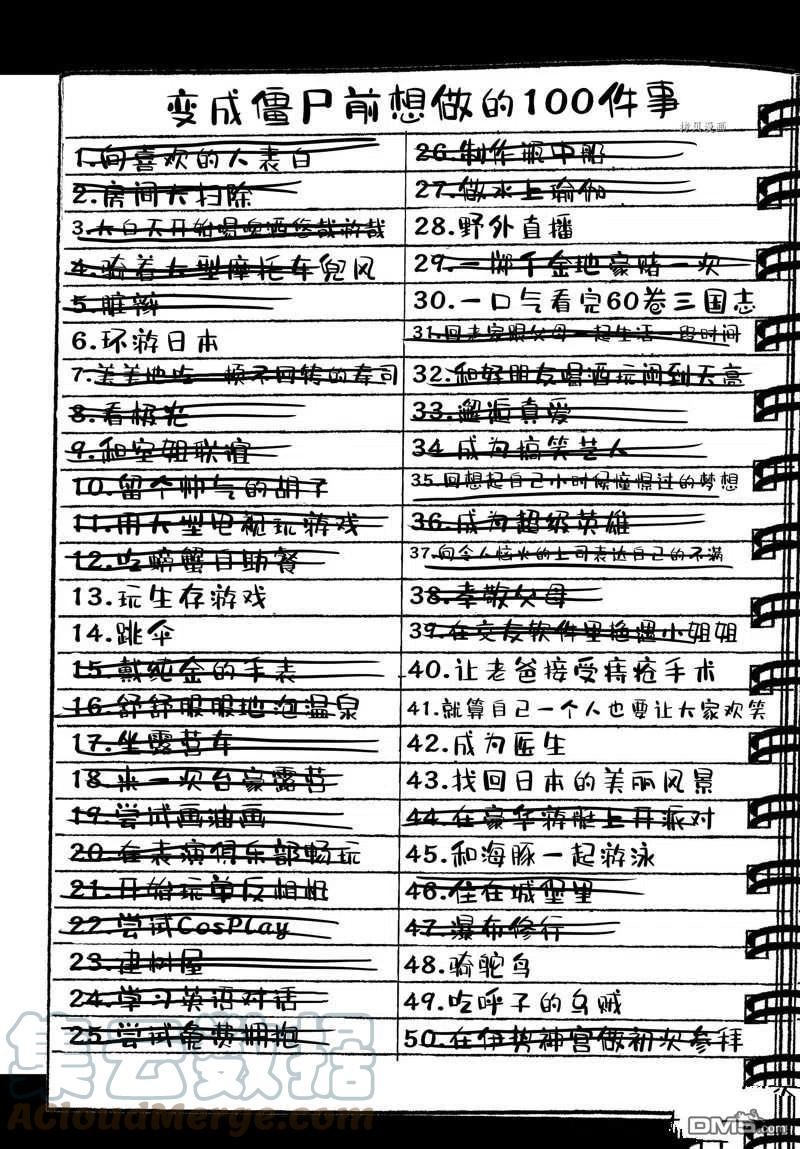 变成僵尸前想做的100件事
拷贝漫画
1.向喜欢的人表白
2.房间大扫除
3.大白天开始喝啤酒悠哉游哉
4.骑着大型摩托车兜风
5.脏辫
6.环游日本
7.美美地吃一顿不回转的寿司
8.看极光
9.和空姐联谊
10.留个帅气的胡子
11.用大型电视玩游戏
12.吃螃蟹自助餐
13.玩生存游戏
14.跳伞
15.戴纯金的手表
16.舒舒服服地泡温泉
17.坐露营车
18.来一次台豪露营
19.尝试画油画
20.在表演俱乐部畅玩
21.开始玩单反相机
22.尝试CosPlay
23.建树屋
24.学习英语对话
25.尝试免费拥抱
26.制作瓶中船
27.做水上瑜伽
28.野外直播
29.一掷千金地豪赌一次
30.一口气看完60卷三国志
31.回老家跟父母一起生活一段时间
32.和好朋友喝酒玩闹到天亮
33.邂逅真爱
34.成为搞笑艺人
35.回想起自己小时候憧憬过的梦想
36.成为超级英雄
37.向令人恼火的上司表达自己的不满
38.孝敬父母
39.在交友软件里艳遇小姐姐
40.让老爸接受痔疮手术
41.就算自己一个人也要让大家欢笑
42.成为医生
43.找回日本的美丽风景
44.在豪华游艇上开派对
45.和海豚一起游泳
46.住在城堡里
47.瀑布修行
48.骑鸵鸟
49.吃呼子的乌贼
50.在伊势神宫做初次参拜
集云数据
ACloudMerge.com
DM5.com